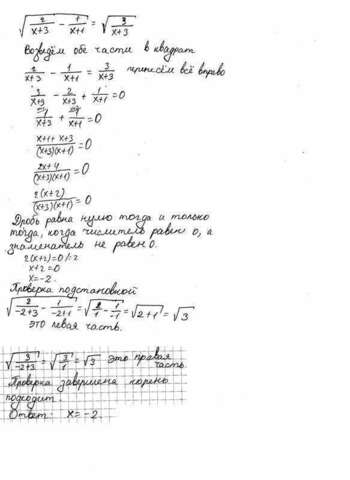 √(2/(x+3) - 1/(x+1)) = √(3/(x+3))
Возведём обе части в квадрат
2/(x+3) - 1/(x+1) = 3/(x+3) принесём всё вправо
3/(x+3) - 2/(x+3) + 1/(x+1) = 0
1/(x+3) + 1/(x+1) = 0
(x+1+x+3)/((x+3)(x+1)) = 0
(2x+4)/((x+3)(x+1)) = 0
2(x+2)/((x+3)(x+1)) = 0
Дробь равна нулю тогда и только
тогда, когда числитель равен 0, а
знаменатель не равен 0.
2(x+2)=0/:2
x+2=0
x=-2.
Проверка подстановкой
√(2/(-2+3) - 1/(-2+1)) = √(2/1 - 1/-1) = √(2+1) = √3
это левая часть.
√(3/(-2+3)) = √(3/1) = √3 это правая
часть
Проверка завершена корень
подходит.
Ответ: x=-2.